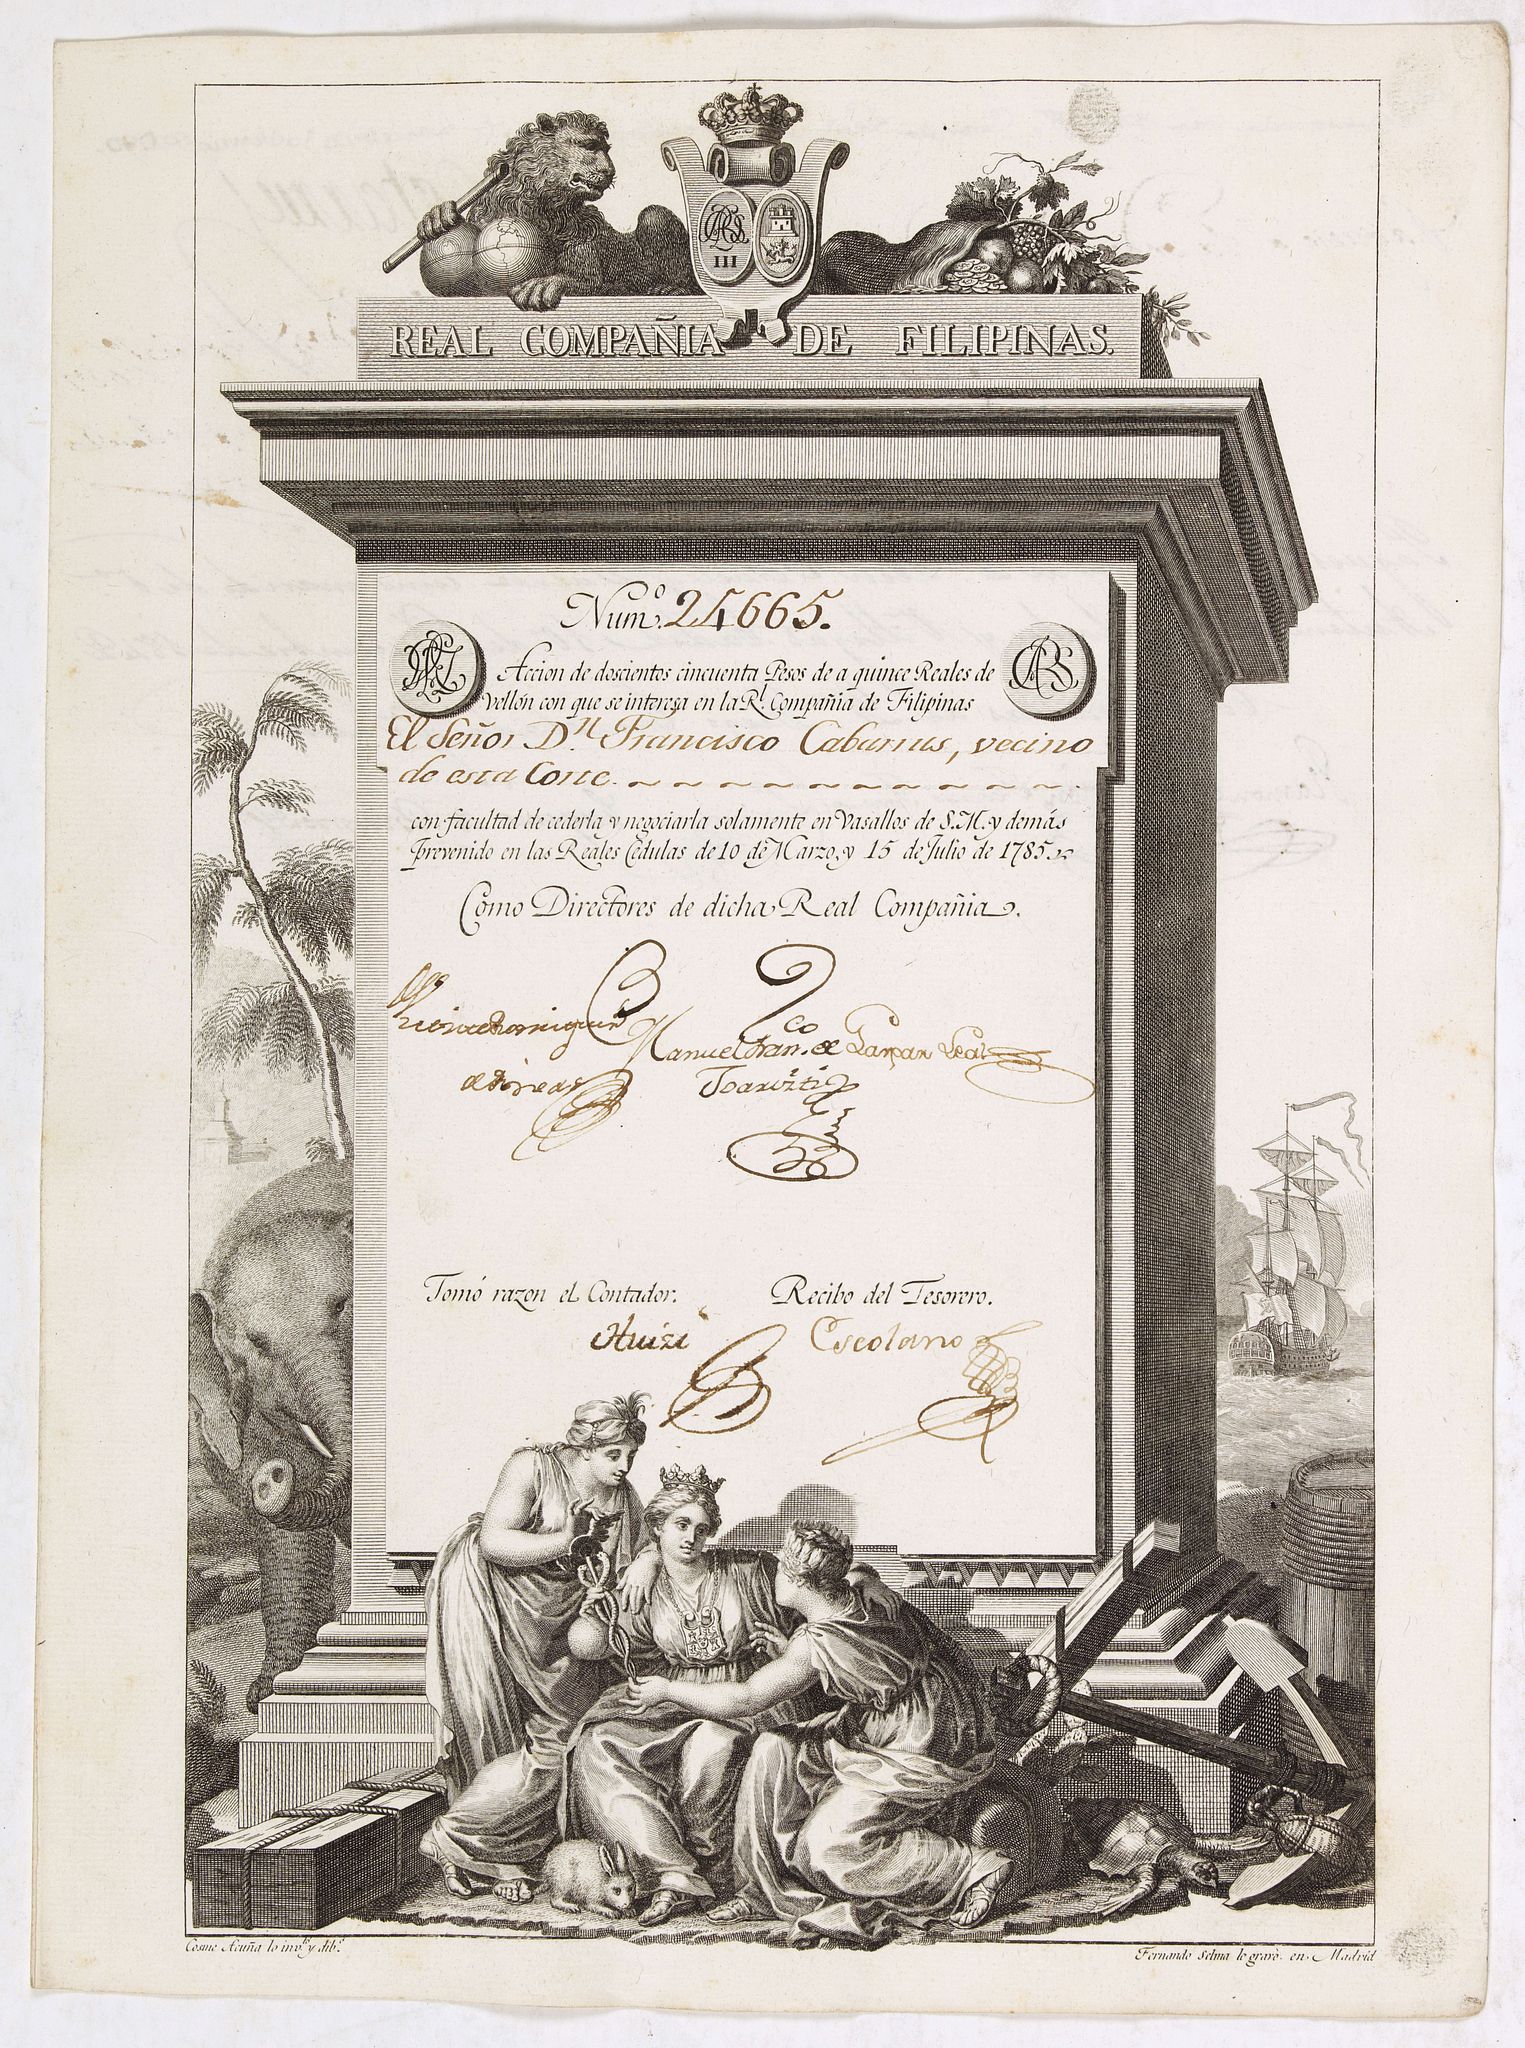 III
REAL COMPAÑIA DE FILIPINAS.
Num.º 24665.
Accion de doscientos cincuenta Pesos de a quince Reales de
vellón con que se interesa en la Rl. Compañia de Filipinas
El Señor Dn. Francisco Cabarrus, vecino
de esta Corte.
con facultad de cederla y negociarla solamente en Vasallos de S.M. y demás
prevenido en las Reales Cedulas de 10 de Marzo, y 15 de Julio de 1785.
Como Directores de dicha Real Compañia.
Manuel Fran.co de Gaspar Leal
Joarizti
Tomó razon el Contador. Recibo del Tesorero.
Huizi Escolano
Cosme Acuña lo invº. y dibº. Fernando Selma lo gravò. en Madrid